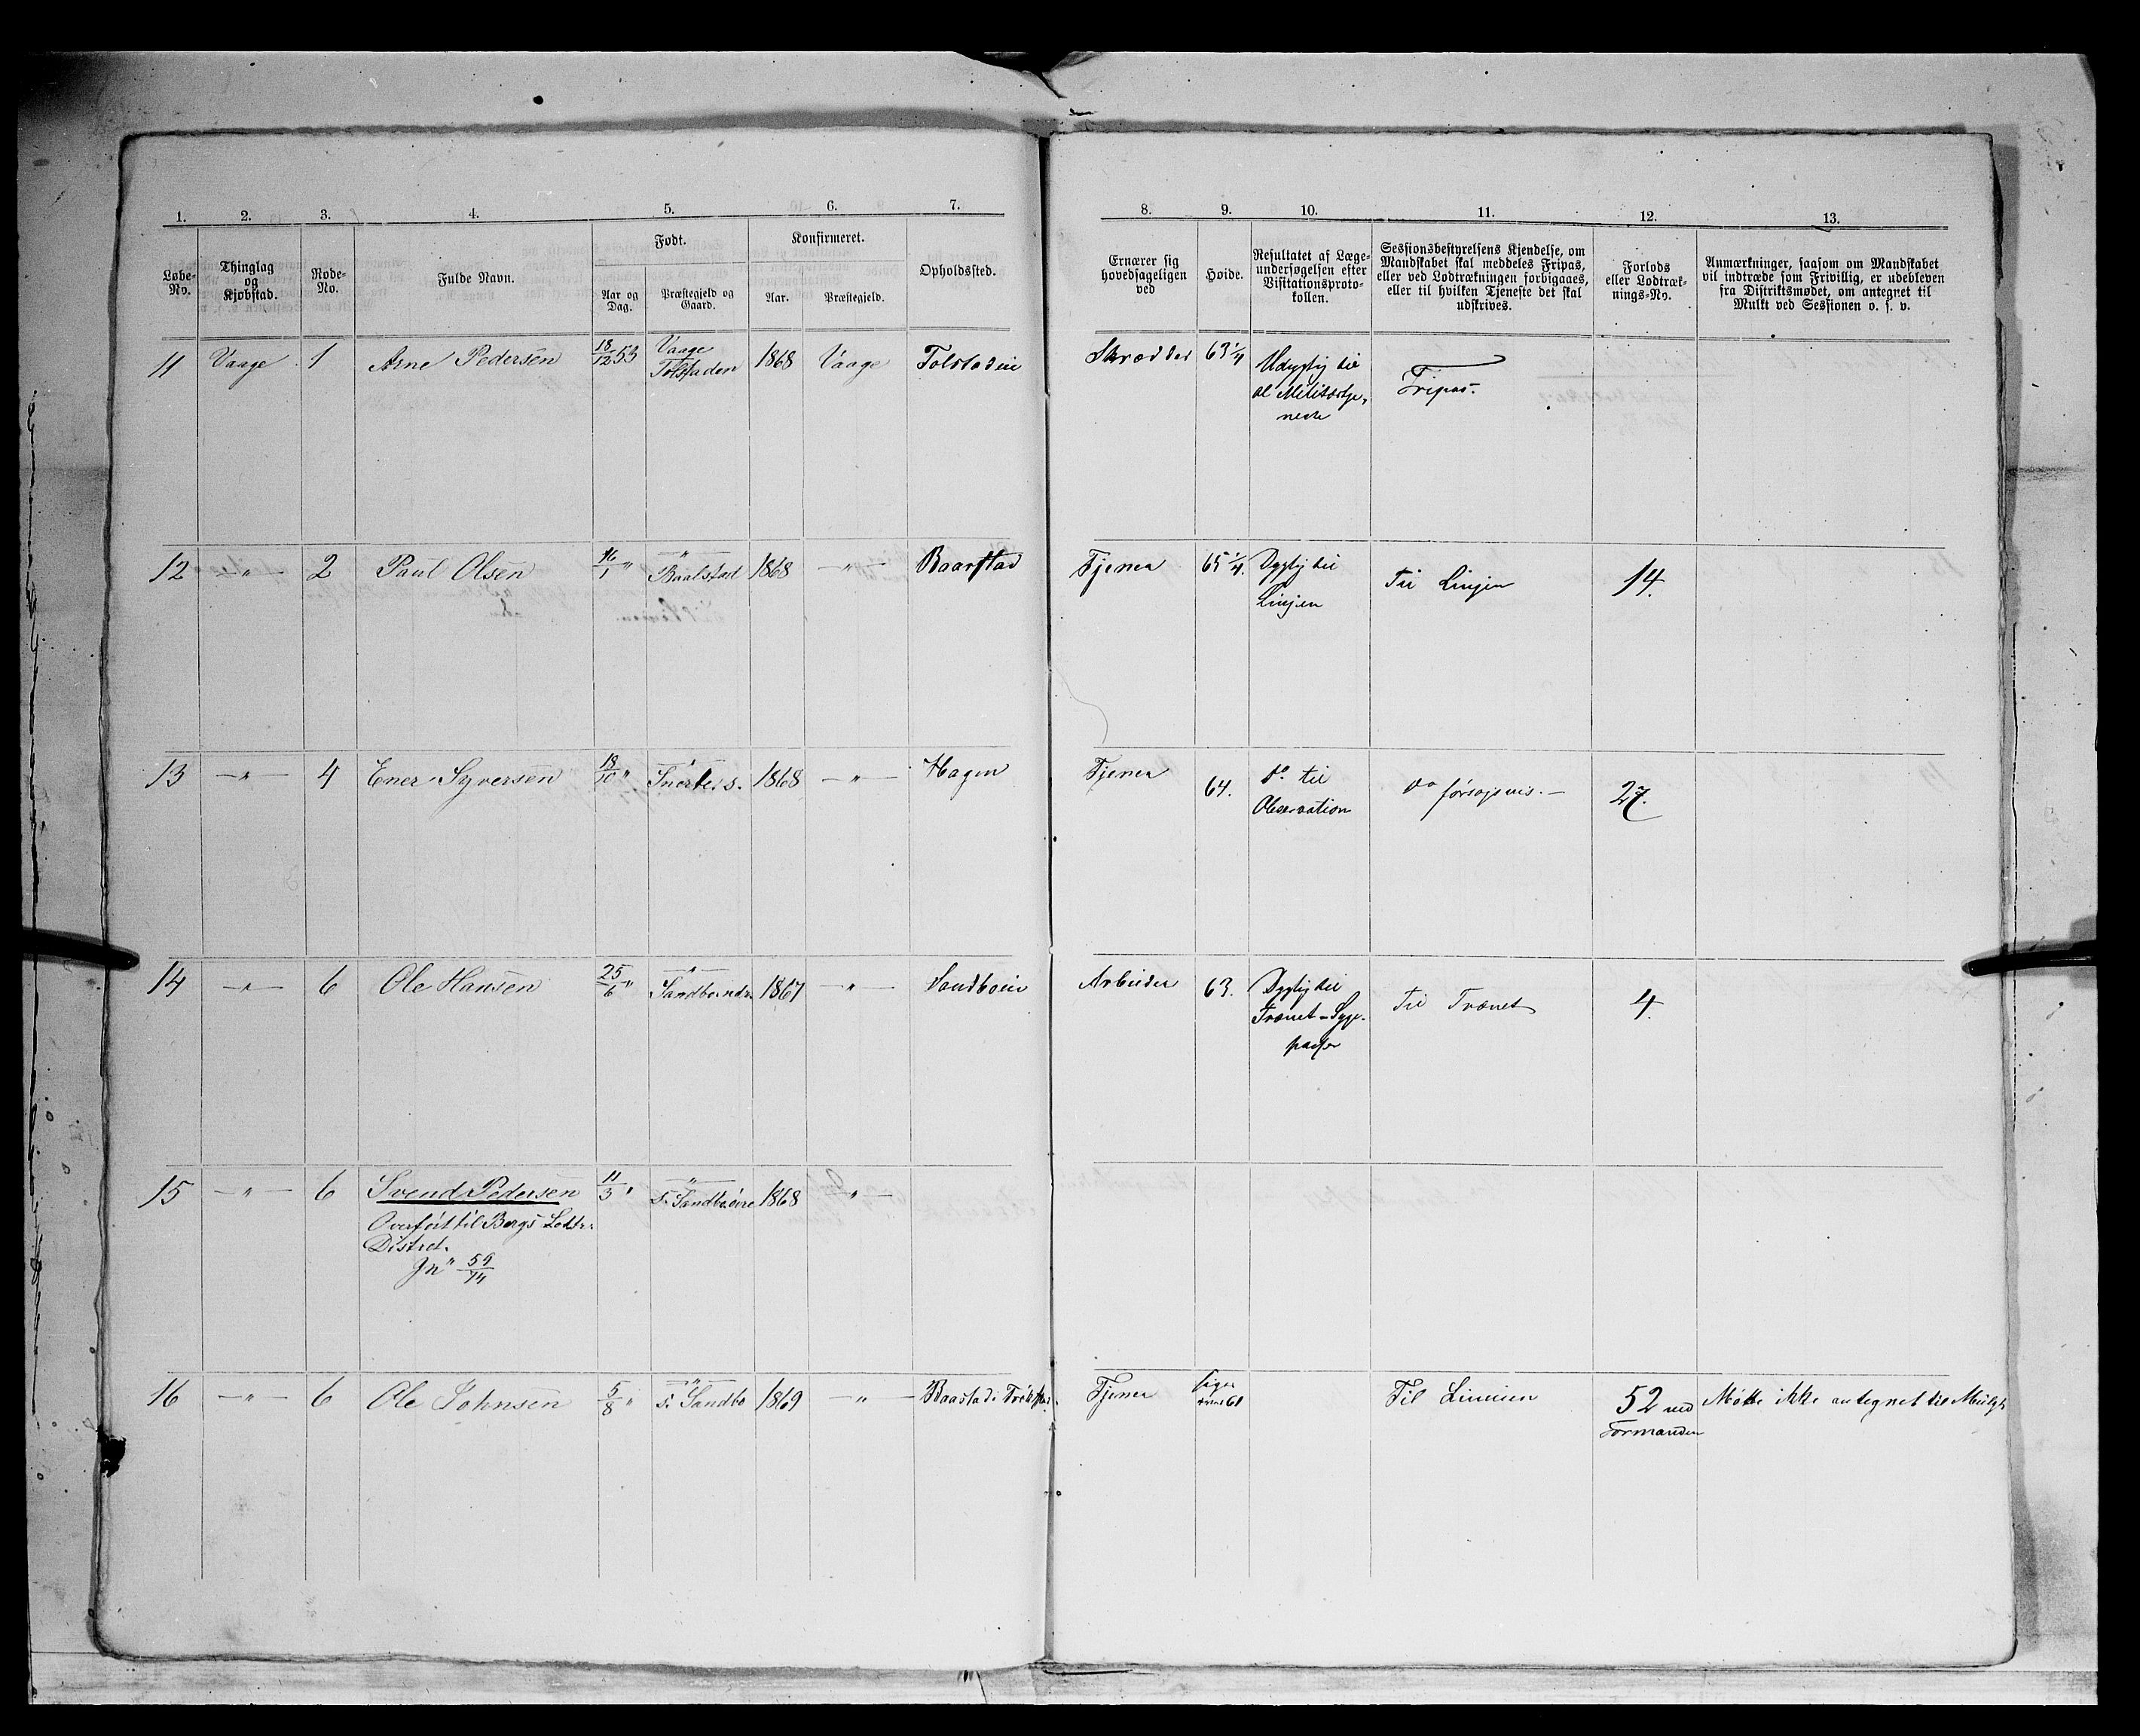 1. 2. 3. 4. 5. 6. 7. 8. 9. 10. 11. 12. 13.
Løbe-
No.
Thinglag
og
Kjøbstad.
Rode-
No.
Fulde Navn.
Født.
Aar og
Dag.
Præstegjeld og
Gaard.
Konfirmeret.
Aar.
Præstegjeld.
Opholdssted.
Ernærer sig
hovedsageligen
ved
Høide.
Resultatet af Læge-
undersøgelsen efter
Visitationsproto-
kollen.
Sessionsbestyrelsens Kjendelse, om
Mandskabet skal meddeles Fripas,
eller ved Lodtrækningen forbigaaes,
eller til hvilken Tjeneste det skal
udskrives.
Forlods
eller Lodtræk-
nings-No.
Anmærkninger, saasom om Mandskabet
vil indtræde som Frivillig, er udebleven
fra Distriktsmødet, om antegnet til
Mulkt ved Sessionen o. s. v.
11 Vaage 1 Arne Pedersen 18/12 53 Vaage
Tolstaden 1868 Vaage Tolstadeie Skrædder 63 1/4 Udygtig til
al Militærtje-
neste
Fripas.
12 —"— 2 Paul Olsen 16/1 " —"—
Baalstad 1868 —"— Baarstad Tjener 65 1/4. Dygtig til
Linjen
Til Linjen 14.
13 —"— 4 Ener Syversen 18/10 " —"—
Snerle s. 1868 —"— Hagen Tjener 64. do til
Observation
do forsøgsvis.— 27.
14 —"— 6 Ole Hansen 25/6 " —"—
Sandbo ndr. 1867 —"— Sandboeie Arbeider 63. Dygtig til
Trænet - Syge-
passer
Til Trænet 4.
15 —"— 6 Svend Pedersen 11/3 " —"—
s. Sandbo øvre 1868 —"—
Overført til Bergs Lette
Distrct.
Jn" 59/74
16 —"— 6 Ole Johnsen 5/8 " —"—
s. Sandbo 1869 —"— Baastad i Tjener siges
61
Til Linien 52 ved
Formanden
Mødte ikke antegnet til Mulgt